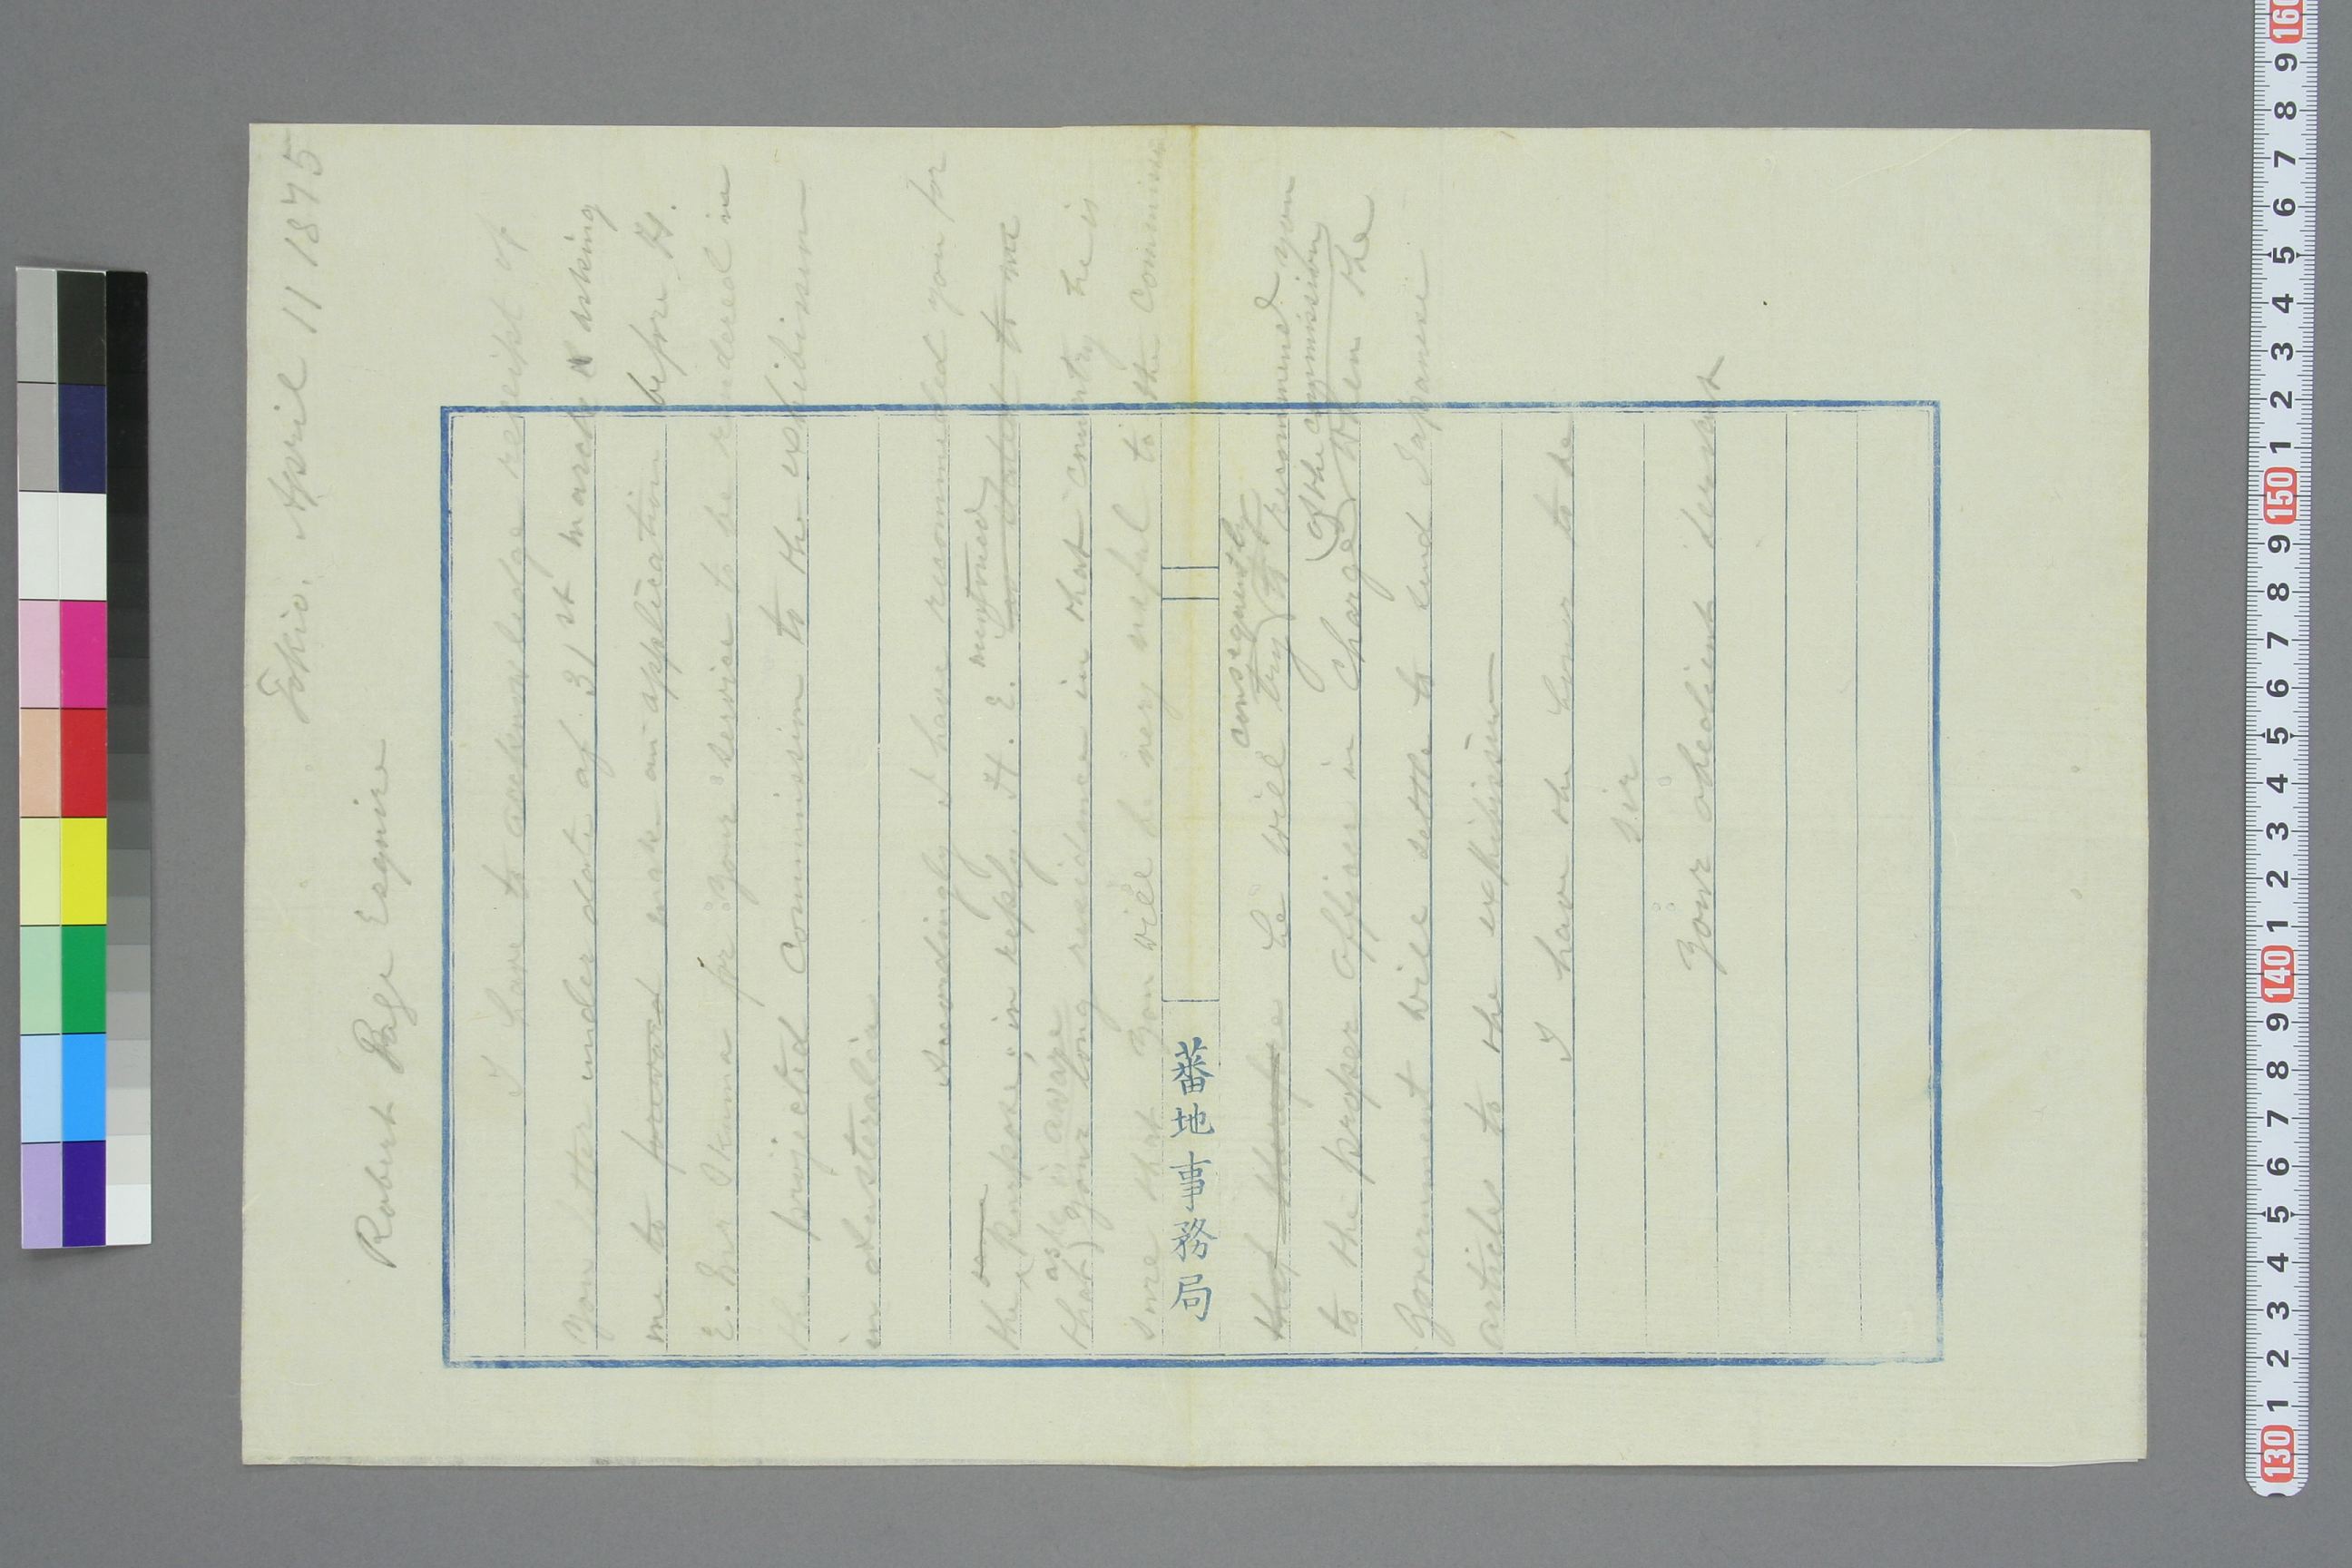 Tokio. April 11 1875
Robert Page Esquire
I have to acknowledge receipt of
your letter under date of 31st march asking
me to forward make an application before H.
E. Mr Okuma for your service to be rendered in
the projected Commission to the exhibission
in Australia
Accordingly I have recommended you for
the same purpose; in reply, H. E. mentioned has stated to me
that as he is aware your long residence in that country he is
sure that you will be very useful to the Commission
that therefore he will consequently try to recommend you
to the proper officer in Charge of the commission when the
Government will settle to send Japanese
articles to the exhibission
I have the honor to be
Sir
Your obedient servant
蕃地事務局
160
9
8
7
6
5
4
3
2
1
150
9
8
7
6
5
4
3
2
1
140
9
8
7
6
5
4
3
2
1
130